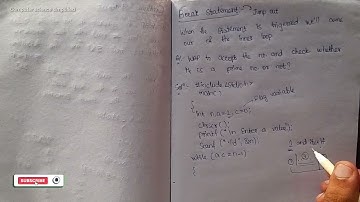 Computer science simplified
Break Statement → Jump out
when the statement is triggered we'll come
out of the inner loop
Q. WAP to accept the no and check whether
it is a prime no or not?
Sol:- #include<stdio.h>
main()
{
int n, a=2, c=0;
flag variable
clrscr();
printf("\n Enter a value");
scanf("%d", &n);
while (a<=n-1)
{
SUBSCRIBE